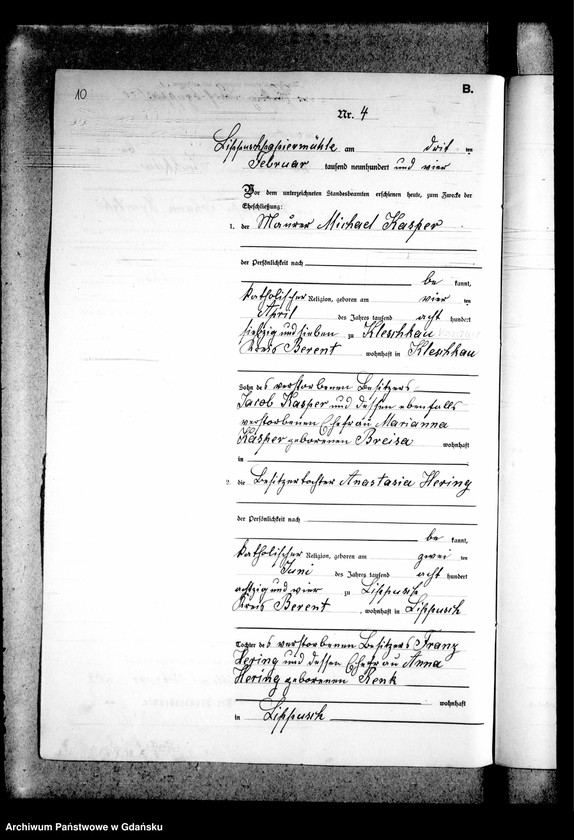 10
B.
Nr. 4
Lippuschpapiermühle am drit ten
Februar tausend neunhundert und vier
Vor dem unterzeichneten Standesbeamten erschienen heute, zum Zwecke der
Eheschließung:
1. der Maurer Michael Kasper
der Persönlichkeit nach
be kannt,
katholischer Religion, geboren am vier ten
April des Jahres tausend acht hundert
siebzig und sieben zu Kleschkau
Kreis Berent wohnhaft in Kleschkau
Sohn des verstorbenen Besitzers
Jacob Kasper und dessen ebenfalls
verstorbenen Ehefrau Marianna
Kasper geborenen Breisa wohnhaft
in
2. die Besitzertochter Anastasia Hering
der Persönlichkeit nach
be kannt,
katholischer Religion, geboren am zwei ten
Juni des Jahres tausend acht hundert
achtzig und vier zu Lippusch
Kreis Berent, wohnhaft in Lippusch
Tochter des verstorbenen Besitzers Franz
Hering und dessen Ehefrau Anna
Hering geborenen Renk
wohnhaft
in Lippusch
Archiwum Państwowe w Gdańsku